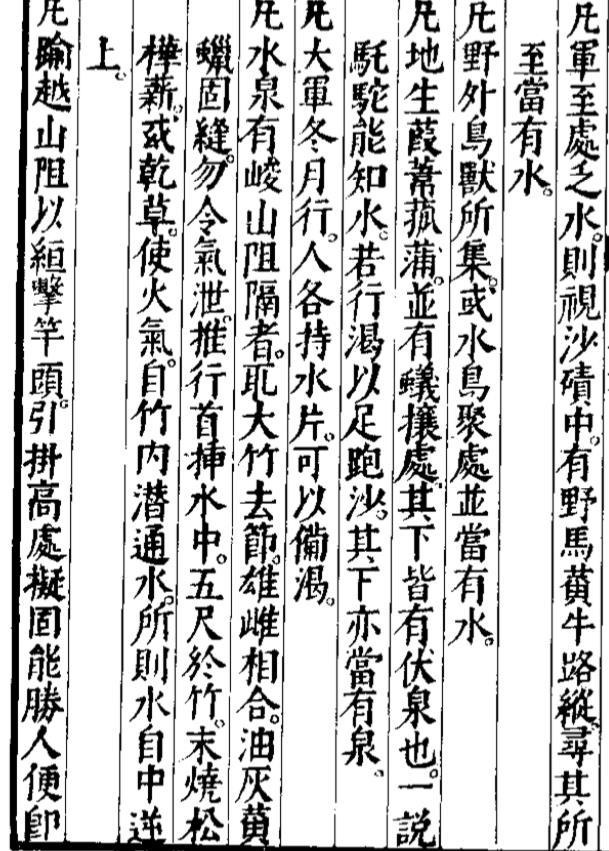 凡軍至處乏水。則視沙磧中。有野馬黃牛路縱。尋其所
至當有水。
凡野外鳥獸所集。或水鳥聚處並當有水。
凡地生葭葦菰蒲。並有蟻攘處。其下皆有伏泉也。一說
駞駝能知水。若行渴以足跑沙。其下亦當有泉。
凡大軍冬月行。人各持水片。可以備渴。
凡水泉有峻山阻隔者。取大竹去節。雄雌相合。油灰黃
蠟固縫。勿令氣泄。推行首揷水中。五尺於竹。末燒松
樺薪。或乾草。使火氣。自竹内潜通水。所則水自中逆
上。
凡踰越山阻以絙擊竿頭。引掛高處擬固能勝人便卽